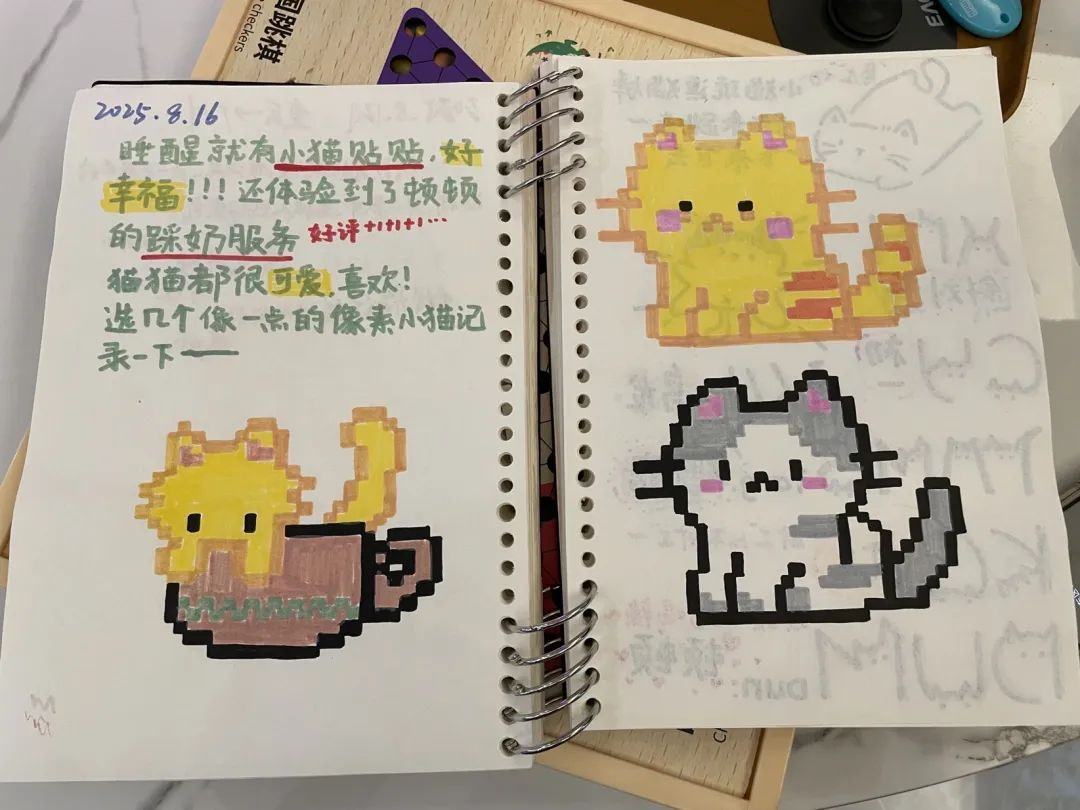 国跳棋
checkers
EVE
2025.8.16
睡醒就有小猫贴贴,好
幸福!!!还体验到了顿顿
的踩奶服务 好评+1+1+1…
猫猫都很可爱,喜欢!
选几个像一点的像素小猫记
录一下——